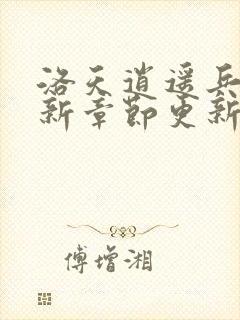 洛天逍遥兵
新章节更新
傅增湘